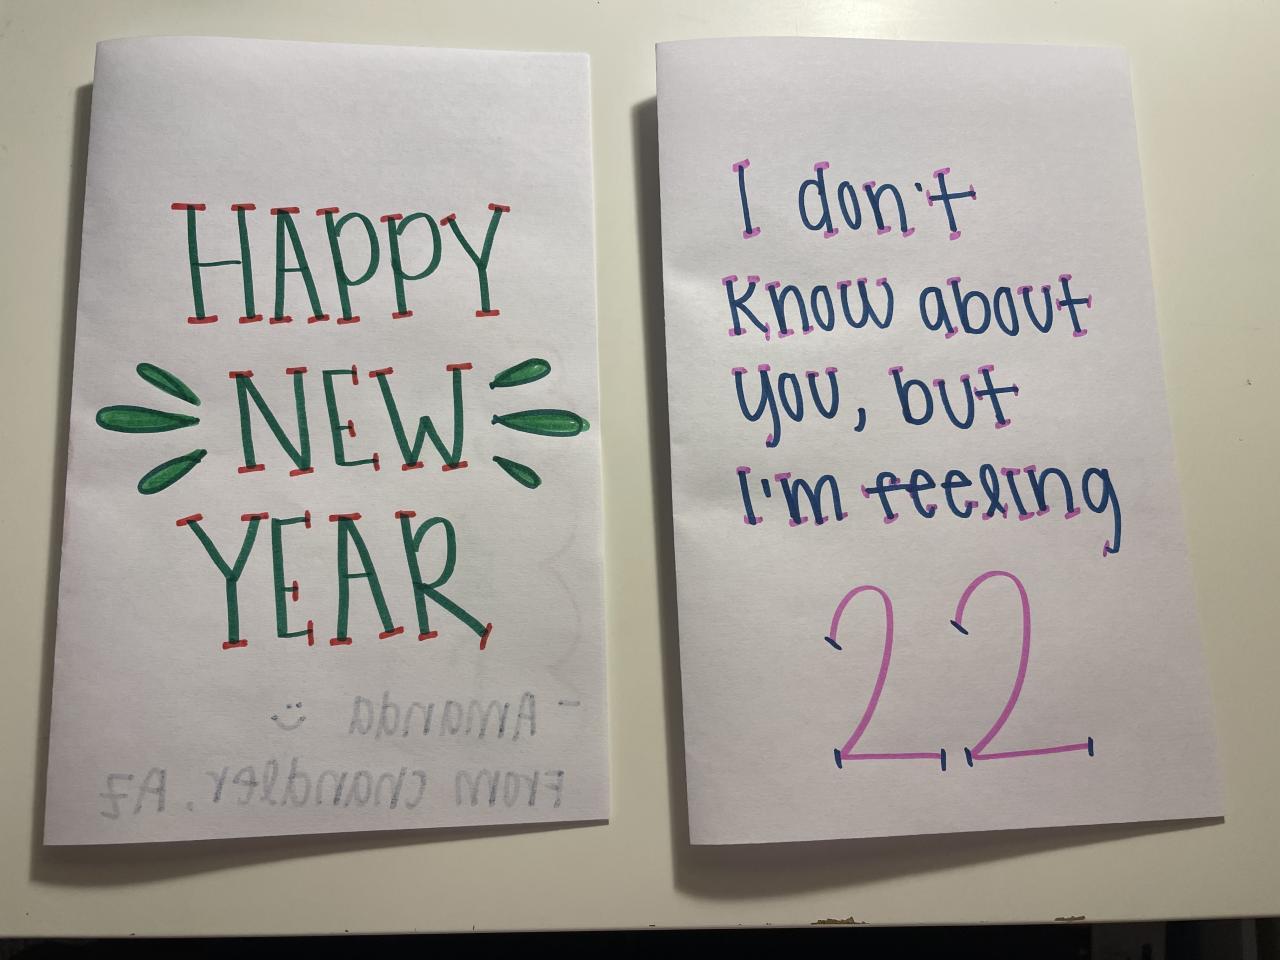 HAPPY
NEW
YEAR
- Amanda :)
From Chandler, AZ
I don't
know about
you, but
I'm feeling
22